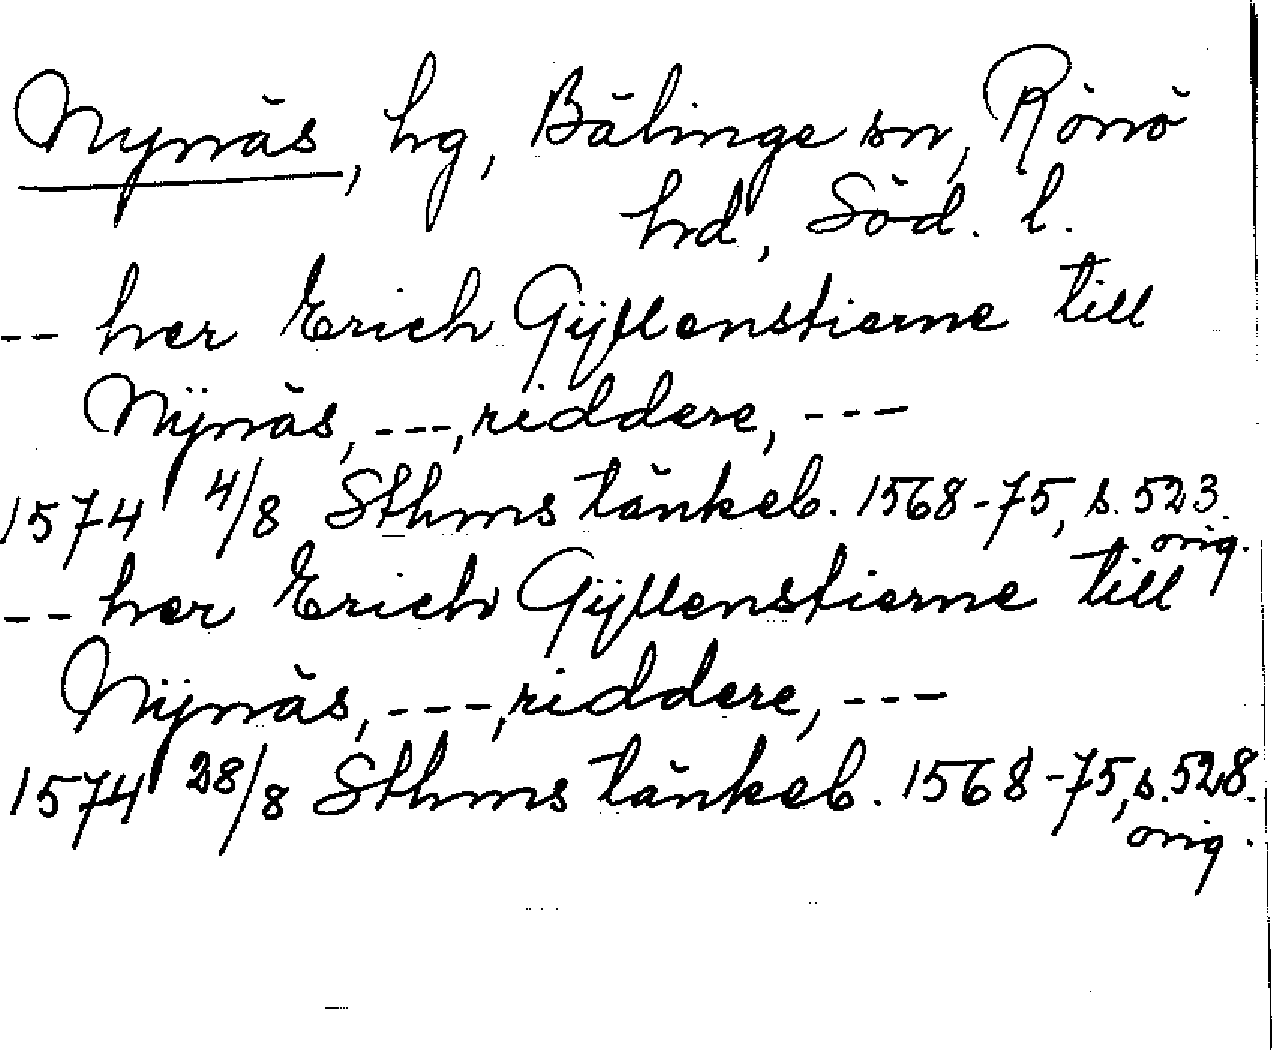 Nynäs, hg, Bälinge sn, Rönö
hd, Söd. l.
-- her Erich Gÿllenstierne till
Nÿnäs, ---, riddere, ---
1574 4/8 Sthms tänkeb. 1568-75, s. 523.
orig.
-- her Erich Gÿllenstierne till
Nÿnäs, ---, riddere, ---
1574 28/8 Sthms tänkeb. 1568-75, s. 528.
orig.